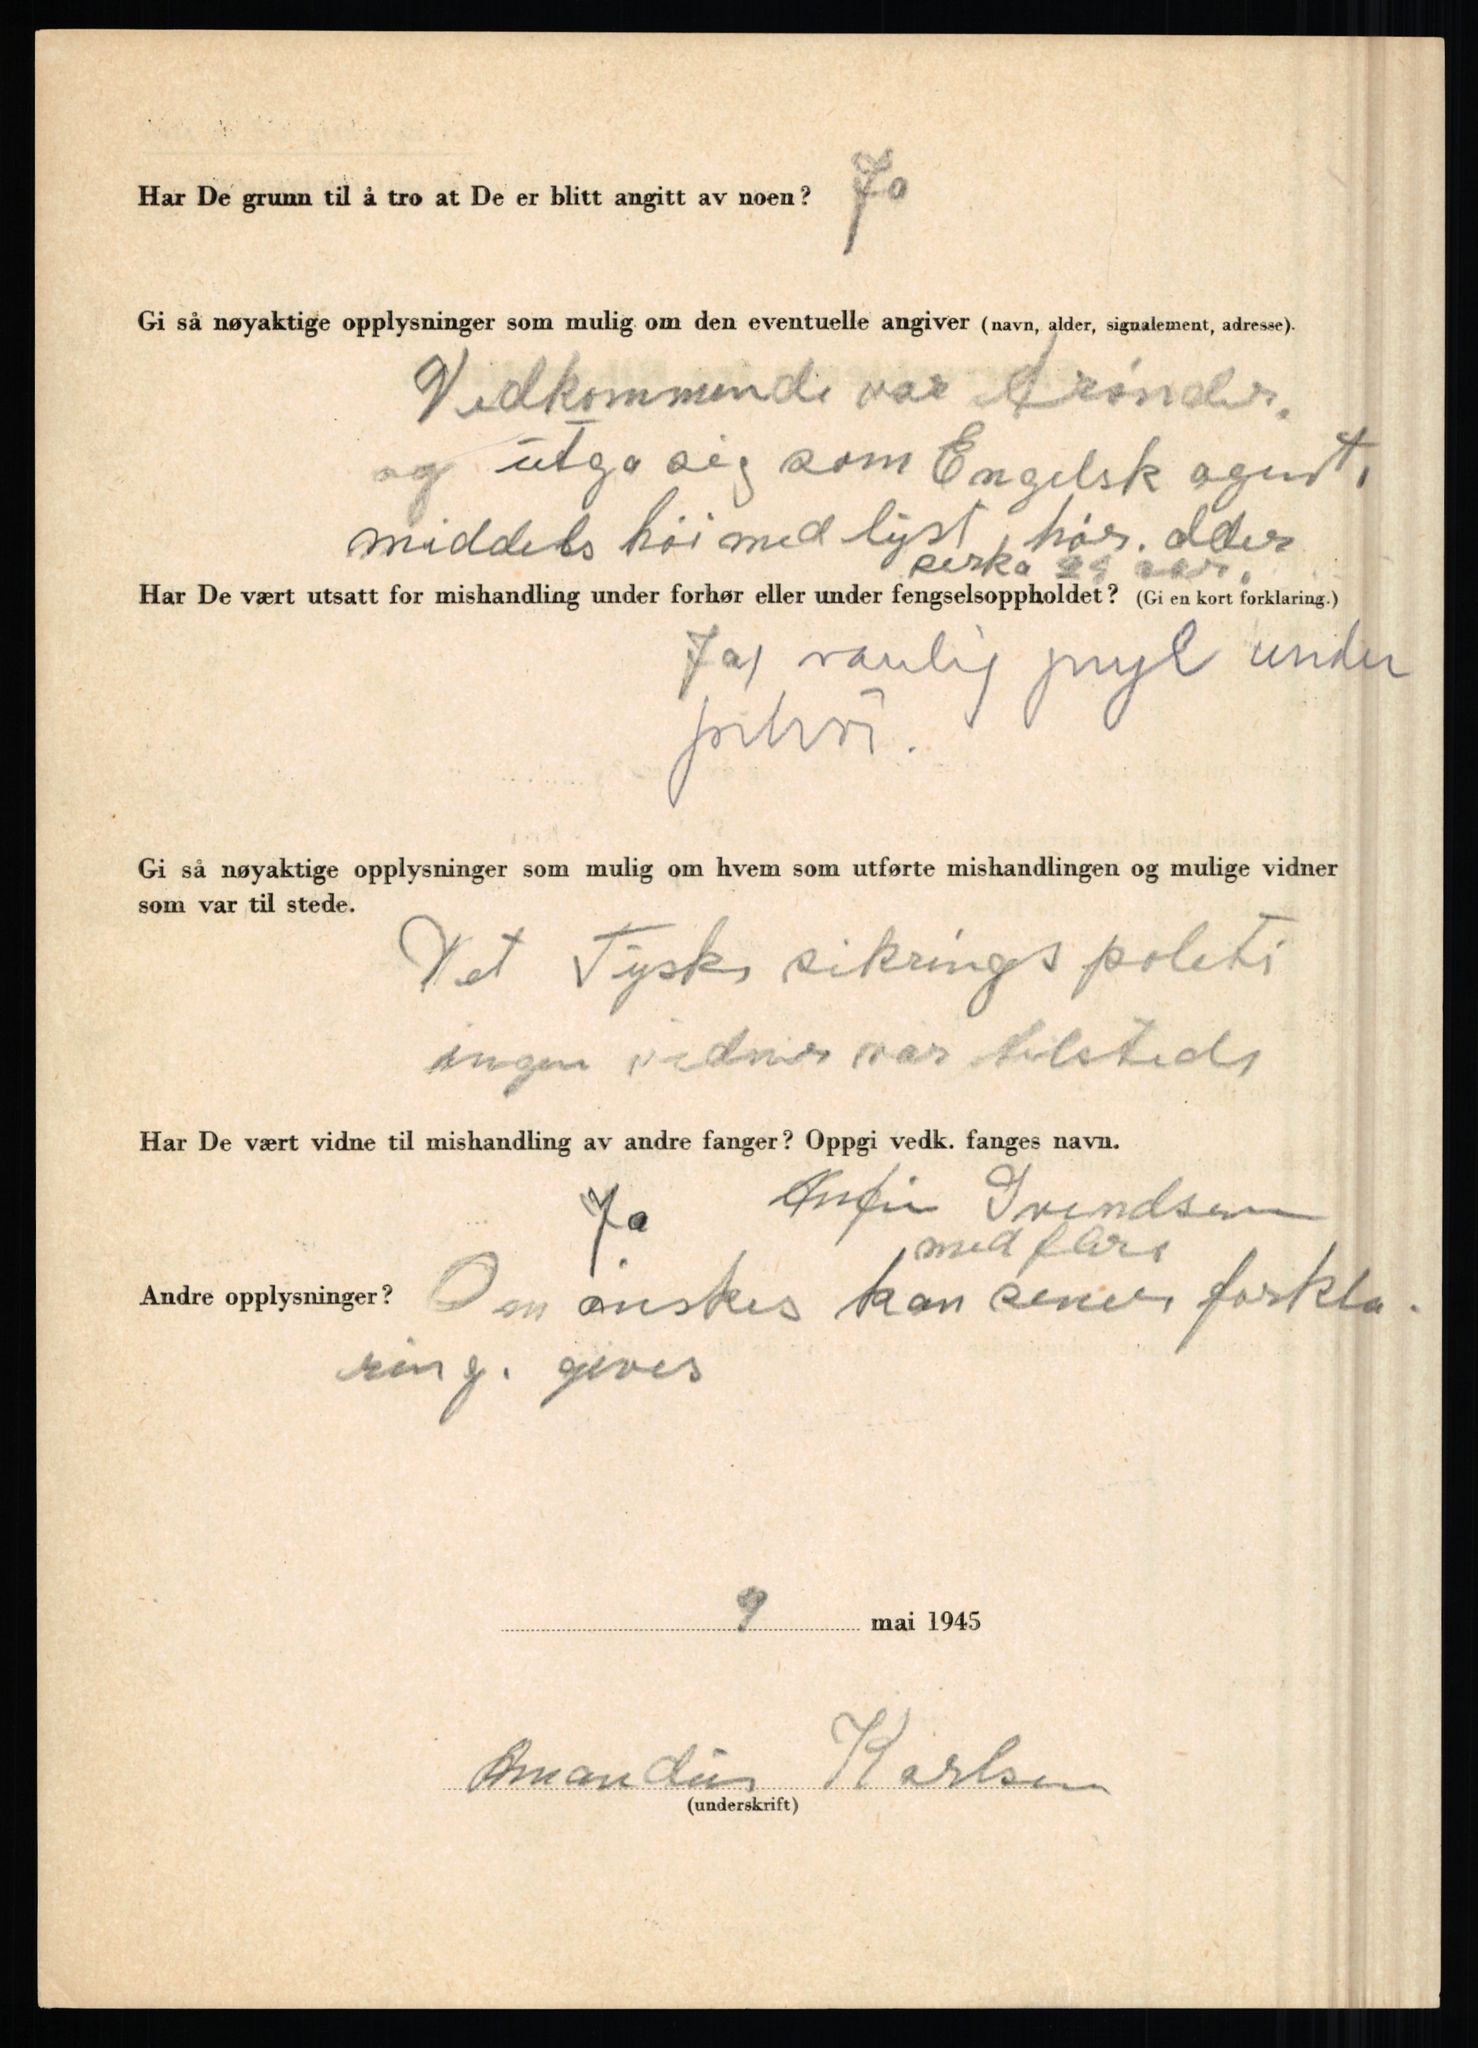 Har De grunn til å tro at De er blitt angitt av noen? Ja
Gi så nøyaktige opplysninger som mulig om den eventuelle angiver (navn, alder, signalement, adresse).
Vedkommende var trønder.
og utga sig som Engelsk agent,
middels høi med lyst hår. alder
serka aar.
Har De vært utsatt for mishandling under forhør eller under fengselsoppholdet? (Gi en kort forklaring.)
Ja, vanlig pryl under
forhör.
Gi så nøyaktige opplysninger som mulig om hvem som utførte mishandlingen og mulige vidner
som var til stede.
Vet Tysk sikrings poleti
ingen vidner var tilstede
Har De vært vidne til mishandling av andre fanger? Oppgi vedk. fanges navn.
Ja Svendsen
med flere
Andre opplysninger? Om ønskes kan senere forkla-
ring. gives
9 mai 1945
Amandus Karlsen
(underskrift)